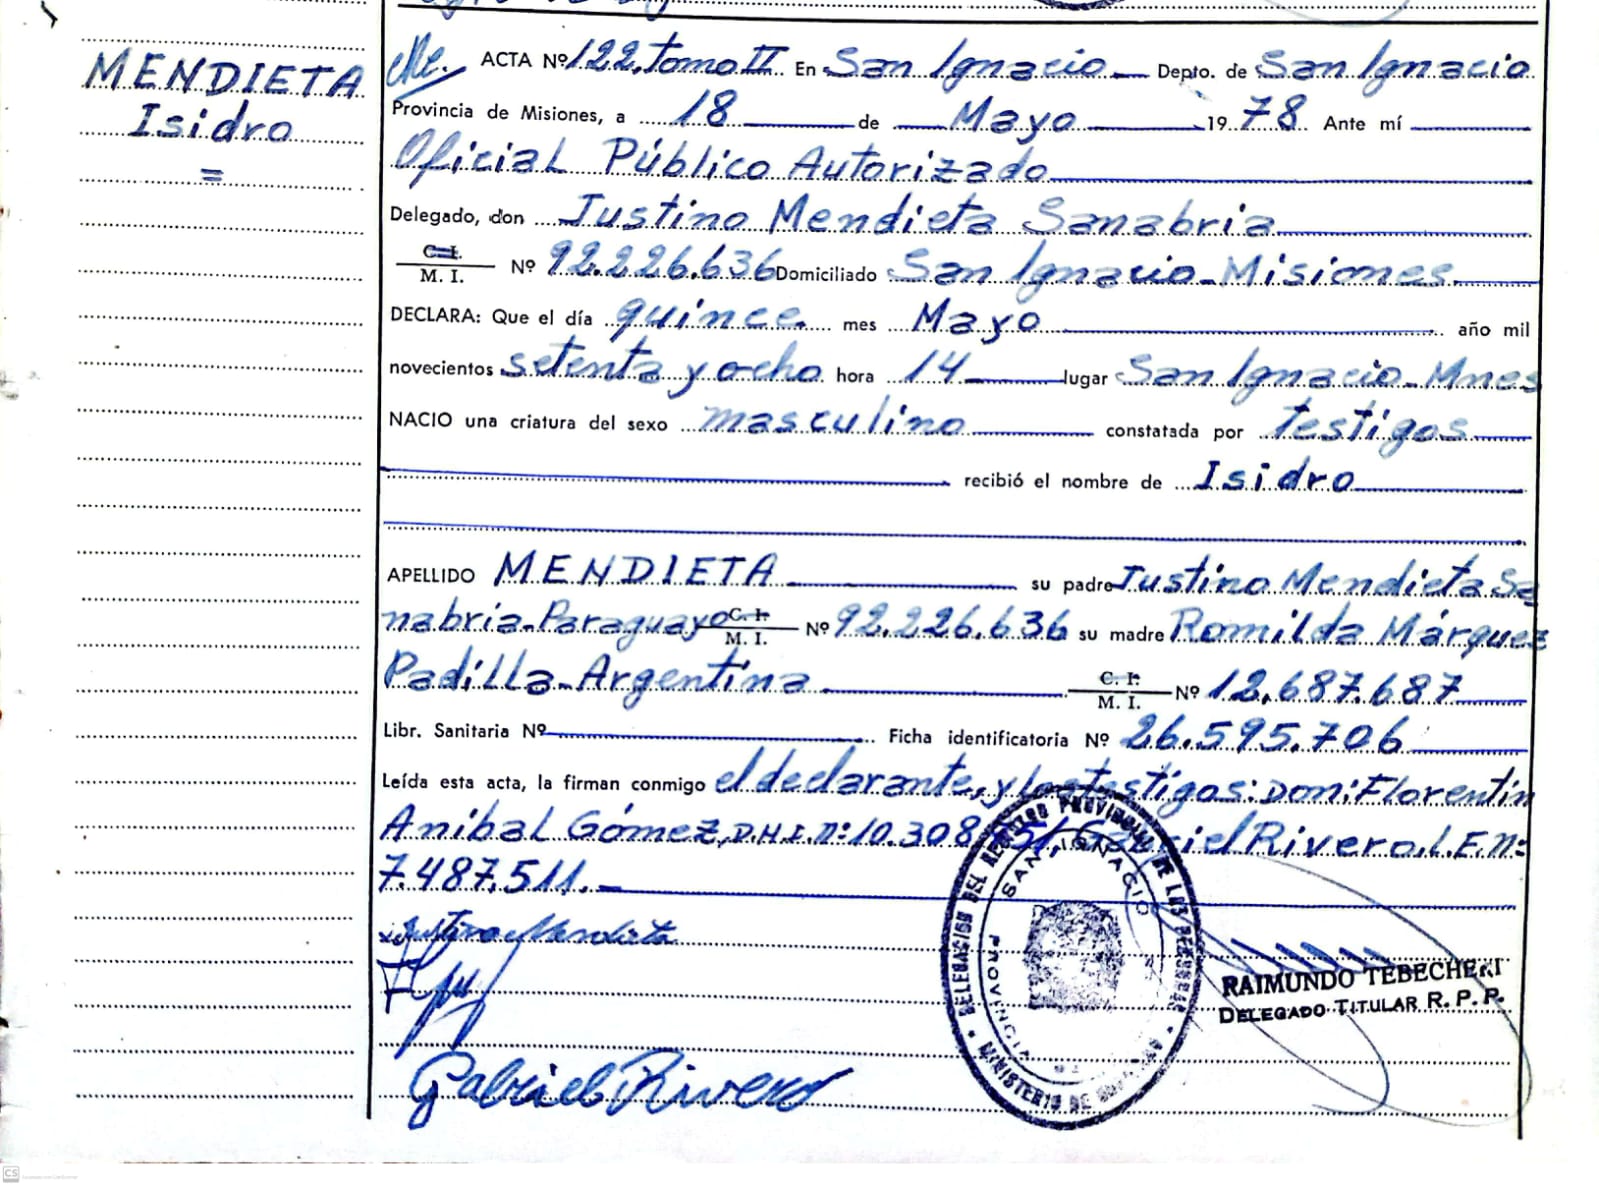 MENDIETA
Isidro
=
ACTA Nº 122, tomo II En San Ignacio Depto. de San Ignacio
Provincia de Misiones, a 18 de Mayo 1978 Ante mí
Oficial Público Autorizado
Delegado, don Justino Mendieta Sanabria
C. I.
M. I. Nº 92.226.636 Domiciliado San Ignacio-Misiones
DECLARA: Que el día quince mes Mayo año mil
novecientos setenta y ocho hora 14 lugar San Ignacio-Mnes
NACIO una criatura del sexo masculino constatada por testigos
recibió el nombre de Isidro
APELLIDO MENDIETA su padre Justino Mendieta Sa
nabria-Paraguayo C. I. M. I. Nº 92.226.636 su madre Romilda Márquez
Padilla-Argentina C. I. M. I. Nº 12.687.687
Libr. Sanitaria Nº Ficha identificatoria Nº 26.595.706
Leída esta acta, la firman conmigo el declarante, y los testigos: Don: Florentin
Anibal Gómez, D.N.I. n: 10.308.151, Gabriel Rivero, L.E.n:
7.487.511.-
Justino Mendieta
Gabriel Rivero
DELEGACION DEL REGISTRO PROVINCIAL DE LAS PERSONAS
MINISTERIO DE GOBIERNO
SAN IGNACIO
PROVINCIA
RAIMUNDO TEBECHERI
DELEGADO TITULAR R. P. P.
CS